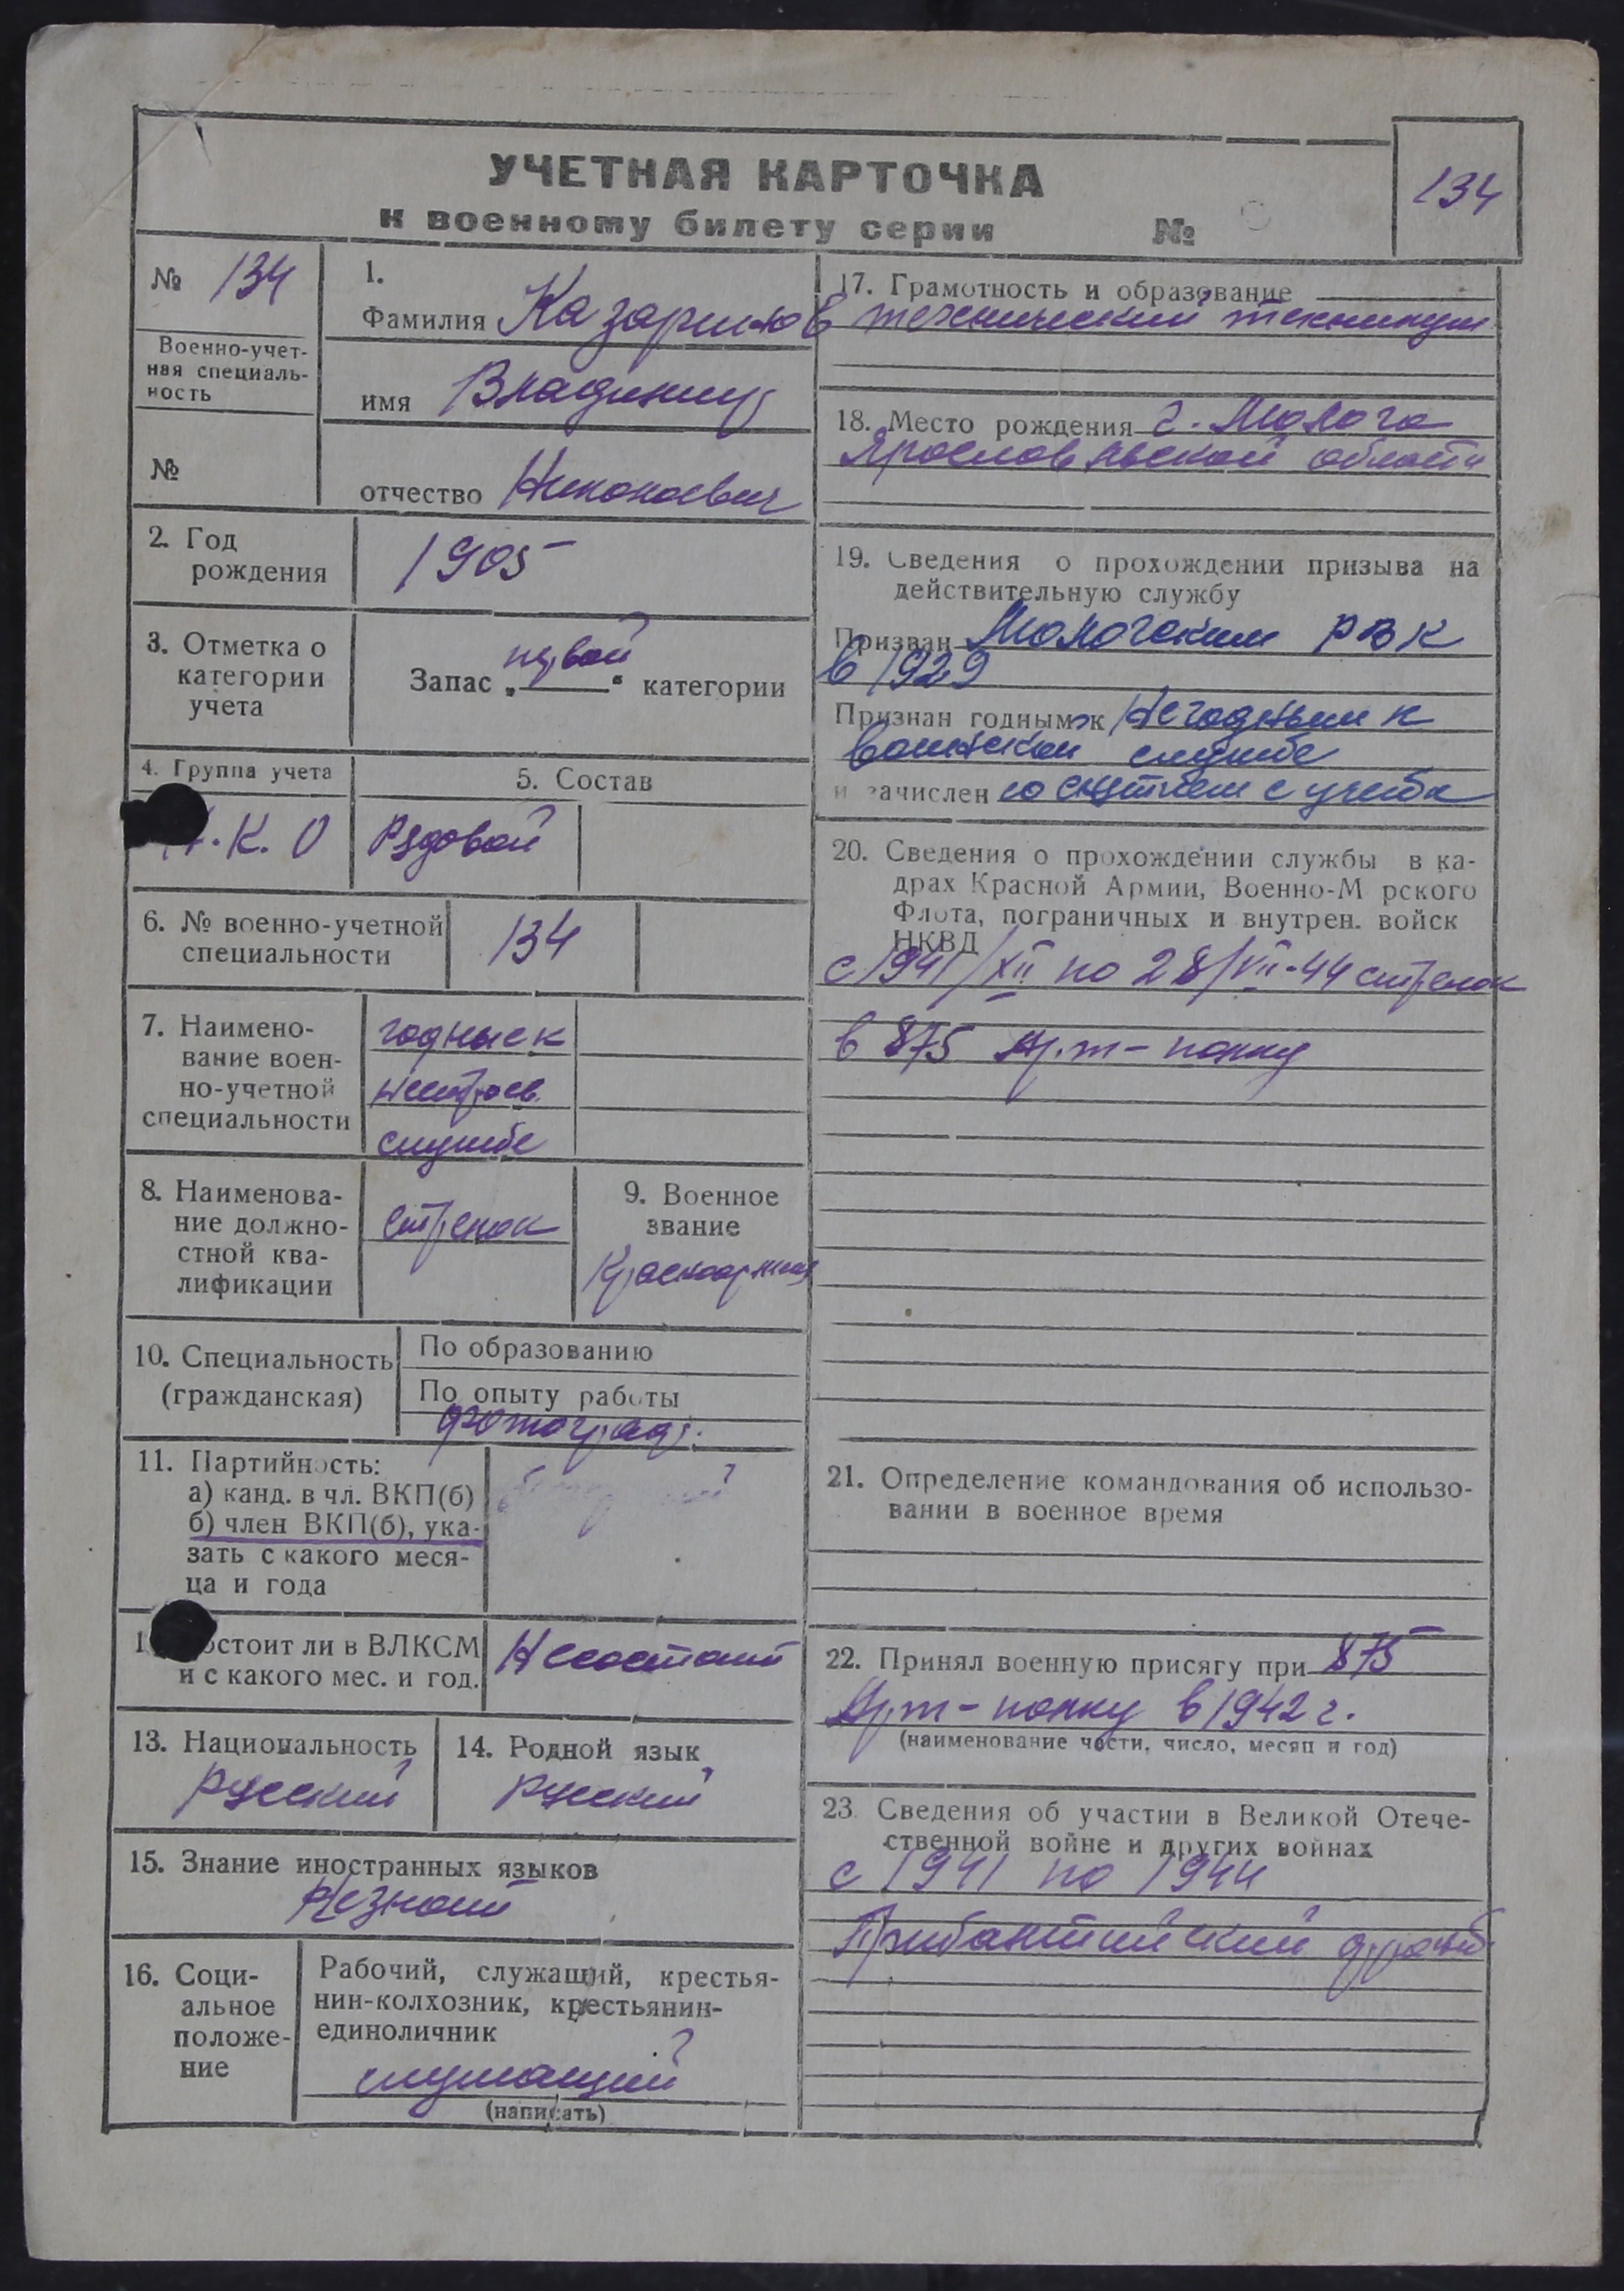 УЧЕТНАЯ КАРТОЧКА
к военному билету серии №
134
№ 134
Военно-учет-
ная специаль-
ность
№
1.
Фамилия Казаринов
имя Владимир
отчество Николаевич
2. Год
рождения
1905
3. Отметка о
категории
учета
Запас „первой“ категории
4. Группа учета
К. О
5. Состав
Рядовой
6. № военно-учетной
специальности
134
7. Наимено-
вание воен-
но-учетной
специальности
годные к
нестроев.
службе
8. Наименова-
ние должно-
стной ква-
лификации
стрелок
9. Военное
звание
Красноармеец
10. Специальность
(гражданская)
По образованию
По опыту работы
фотограф.
11. Партийность:
а) канд. в чл. ВКП(б)
б) член ВКП(б), ука-
зать с какого меся-
ца и года
1 остоит ли в ВЛКСМ
и с какого мес. и год.
Несостоит
13. Национальность
Русский
14. Родной язык
Русский
15. Знание иностранных языков
Незнает
16. Соци-
альное
положе-
ние
Рабочий, служащий, крестья-
нин-колхозник, крестьянин-
единоличник
служащий
(написать)
17. Грамотность и образование
технический техникум
18. Место рождения г. Молога
Ярославльской области
19. Сведения о прохождении призыва на
действительную службу
Призван Мологским РВК
в 1929
Признан годным к Негодным к
воинской службе
и зачислен со снятием с учета
20. Сведения о прохождении службы в ка-
драх Красной Армии, Военно-М рского
Флота, пограничных и внутрен. войск
НКВД
с 1941/XII по 28/VII-44 стрелок
в 875 Арт-полку
21. Определение командования об использо-
вании в военное время
22. Принял военную присягу при 875
Арт-полку в 1942 г.
(наименование части, число, месяц и год)
23. Сведения об участии в Великой Отече-
ственной войне и других войнах
с 1941 по 1944
Прибалтийский фронт